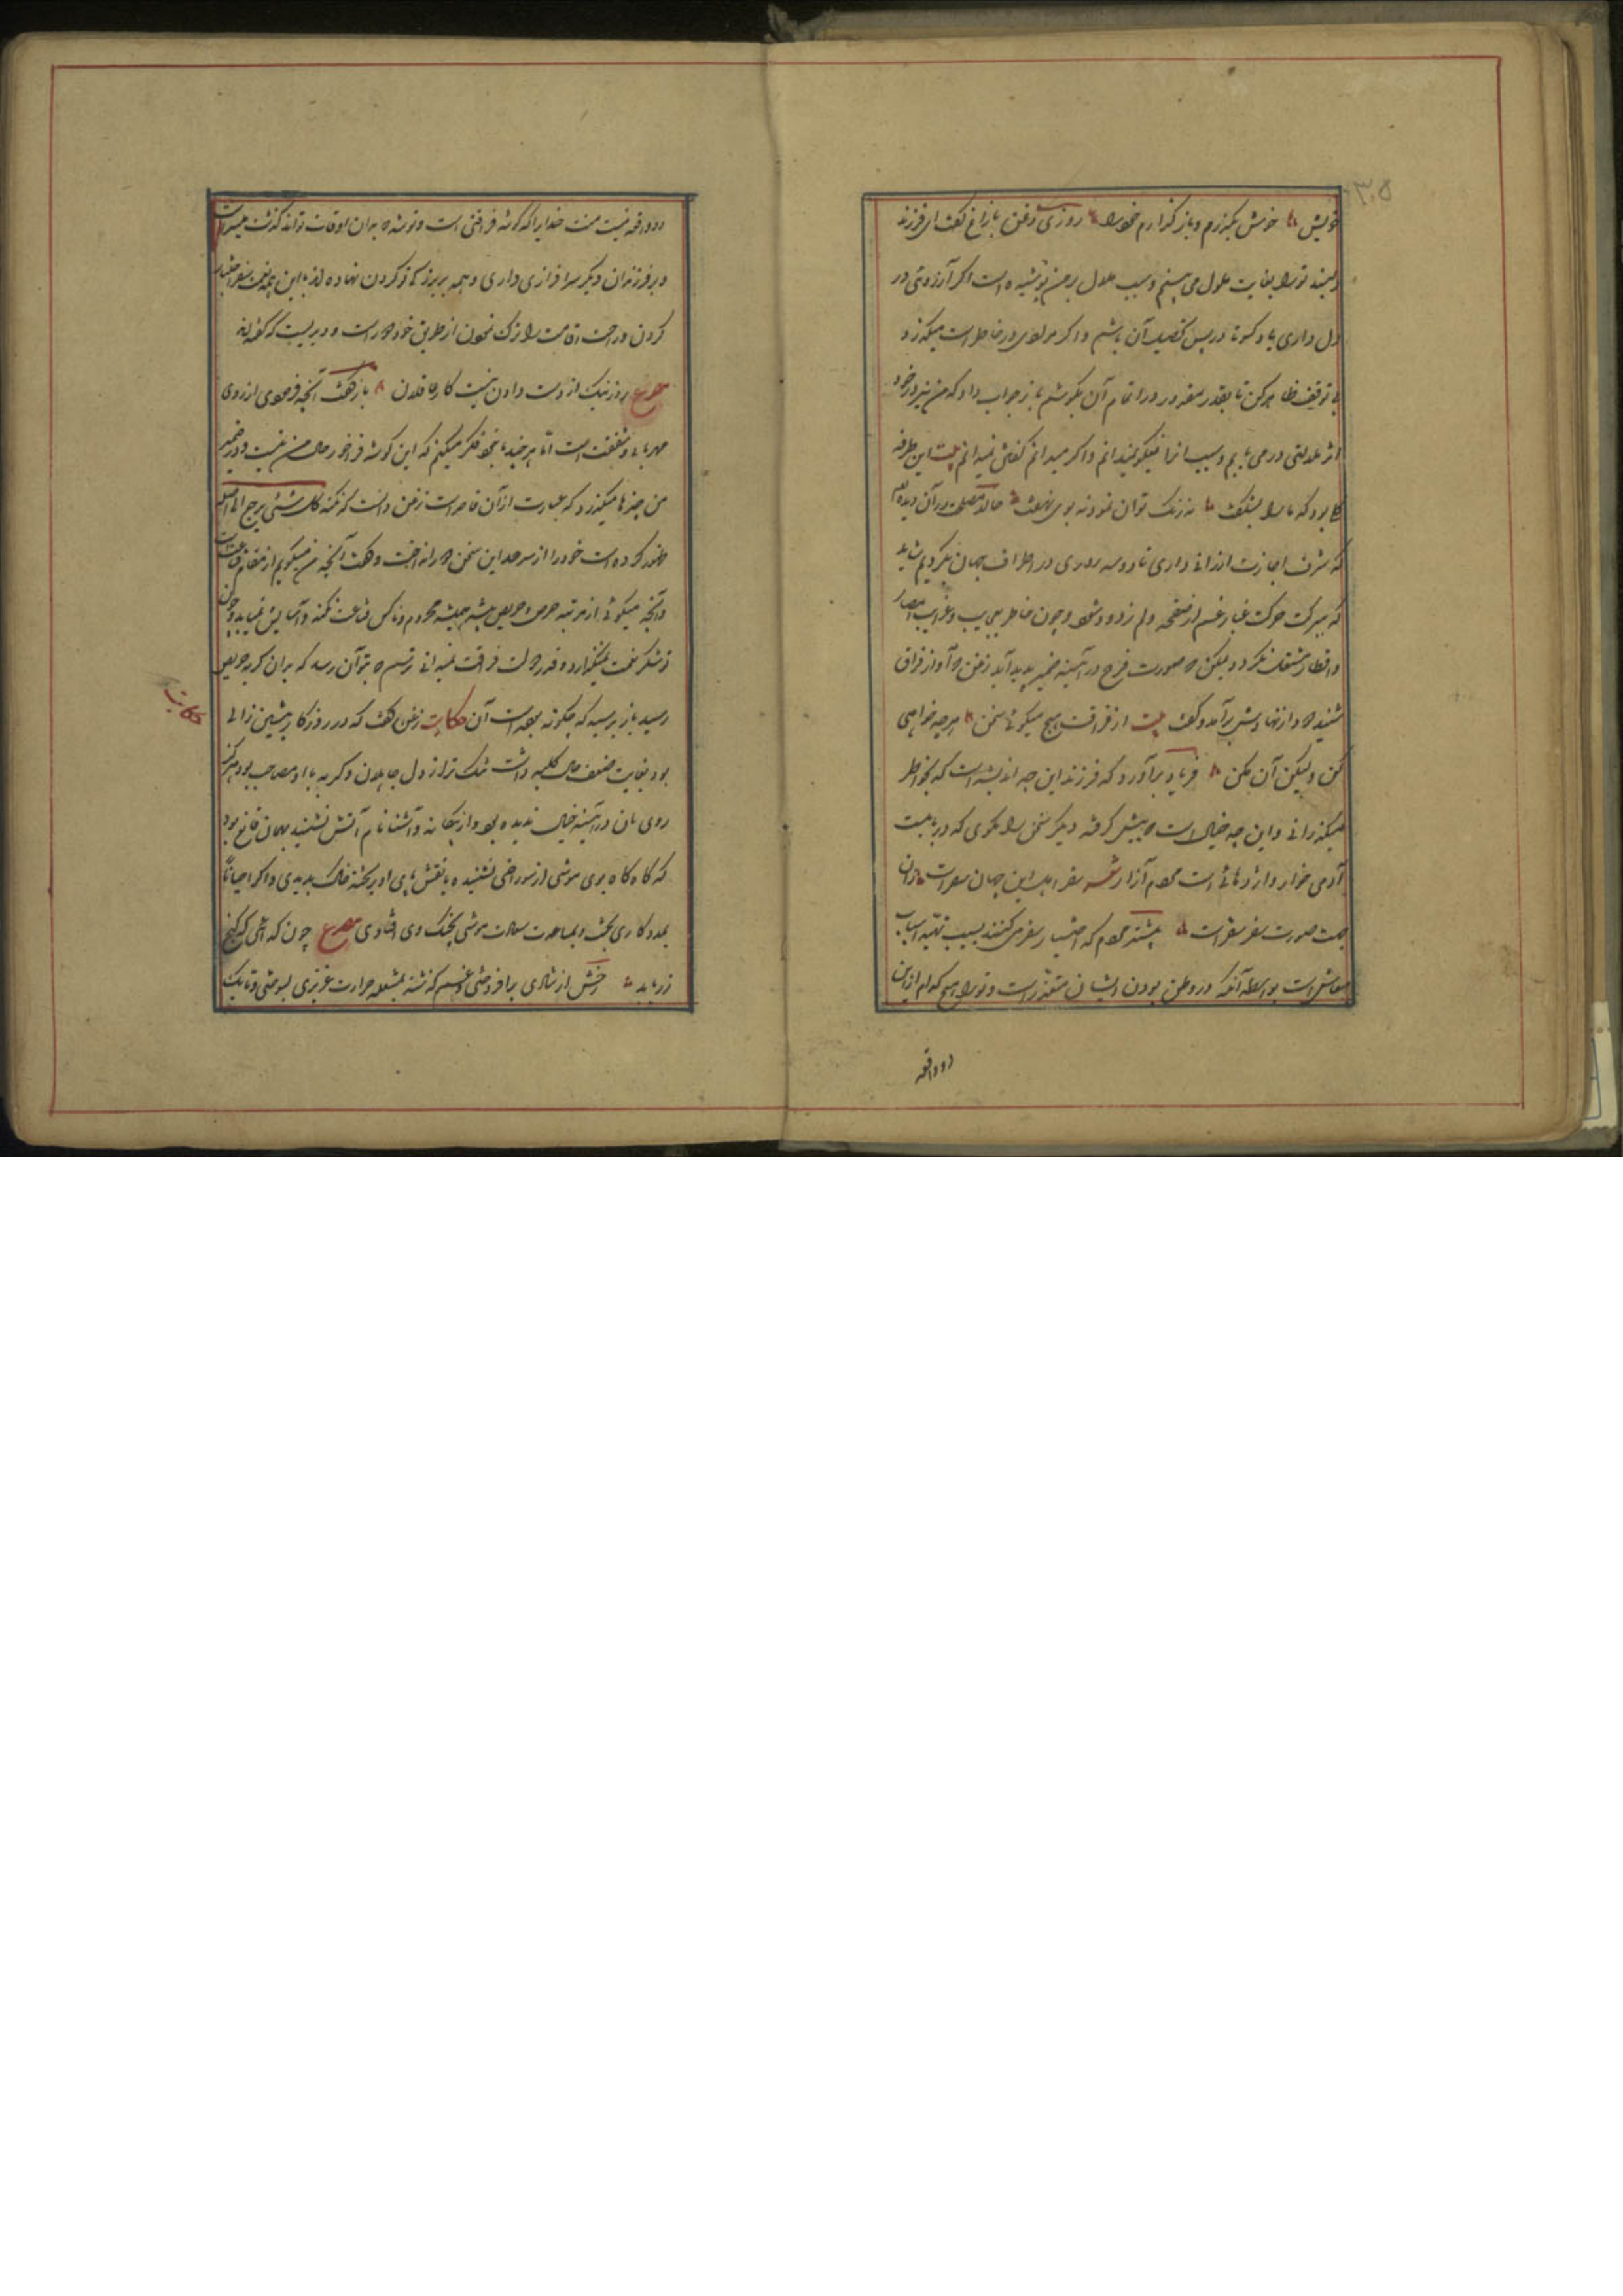 ۳۰۵
خویش خوش بگذرم و باز گذارم خود را روزی زغن باز را گفت ای فرزند
دلبند ترا بغایت ملول می بینم و سبب ملال بر من پوشیده است اگر آرزوئی در
دل داری یاد کن تا در پس تحصیل آن باشم و اگر در خاطرت میگذرد
بی توقف ظاهر کن تا بقدر مقدور در اتمام آن بکوشم باز جواب داد که من نیز در خود
اثر ملالتی در می یابم و سبب آنرا نیکو نمیدانم و اگر میدانم گفتن نمیدانم بیت این طرفه
گلی بود که ما را بشکفت نه رنگ توان نمود نه بوی نهفت حالا مصلحت در آن دیده ام
که شرف اجازت ارزانی داری تا دو سه روزی در اطراف جهان بگردم شاید
که ببرکت حرکت غبار غم از صفحه دلم زدوده شود و چون خاطر بعجایب و غرایب امصار
و اقطار مشغول گردد یمکن که صورت فرح در آئینه ضمیر پدید آید زغن که آواز فراق
شنید دود از نهادش برآمد و گفت بیت از فراقت هیچ میگوئی سخن هر چه خواهی
کن ولیکن آن مکن فریاد برآورد که فرزند این چه اندیشه است که بخاطر
میگذرانی و این چه خیال است که پیش گرفته دیگر سخن سفر مگوی که دریائیست
آدمی خوار و اژدهائی است مردم آزار سفر این جهان سقر است زان
جهت صورت سفر سقر است بیشتر مردم که اختیار سفر می کنند بسبب تهیه اسباب
معاش است بواسطه آنکه در وطن بودن ایشان متعذر است و ترا هیچ کدام ازین
دو واقعه
دو واقعه نیست منت خدایرا که گوشه فراغتی است و توشه که بدان اوقات تواند گذشت میسر است
و بر فرزندان دیگر سرافرازی داری و همه بر بزرگی تو گردن نهاده اند با این همه رنج سفر اختیار
کردن و راحت اقامت را ترک نمودن از طریق خرد دور است و دیریست که گفته اند
مصرع روز نیک از دست دادن نیست کار عاقلان باز گفت آنچه فرمودی از روی
مهربانی و شفقت است اما هر چند با خود فکر میکنم که این گوشه فراخور حال من نیست و در ضمیر
من چیزها میگذرد که عبارت از آن قاصر است زغن دانست که نکته کل شئی یرجع الی اصله
ظهور کرده است خود را از سر حد این سخن دور انداخت و گفت آنچه من میگویم از مقام قناعت است
و آنچه میگوئی از مرتبه حرص و حریص همیشه محروم و تا کس قناعت نکند آسایش نیابد و چون
تو شکر نعمت نمیگذاری و قدر دولت فراغت نمیدانی ترسم که بتو آن رسد که بدان گربه حریص
رسید باز پرسید که چگونه بوده است آن حکایت زغن گفت که در روزگار پیشین زالی
حکایت
بود بغایت ضعیف حال کلبه داشت تنگ تر از دل جاهلان و گربه با او مصاحب بود هرگز
روی نان در آئینه خیال ندیده بود و از بیگانه و آشنا نام آش نشنیده بهمان قانع بود
که گاه گاه بوی موشی از سوراخی شنیده یا نقش پای او بر تخته خاک بدیدی و اگر احیانا
بمددکاری بخت و مساعدت سعادت موشی بچنگ وی افتادی مصرع چون گدائی که گنج
زر یابد رخش از شادی برافروختی و غم گذشته بشعله حرارت غریزی بسوختی و تا یک